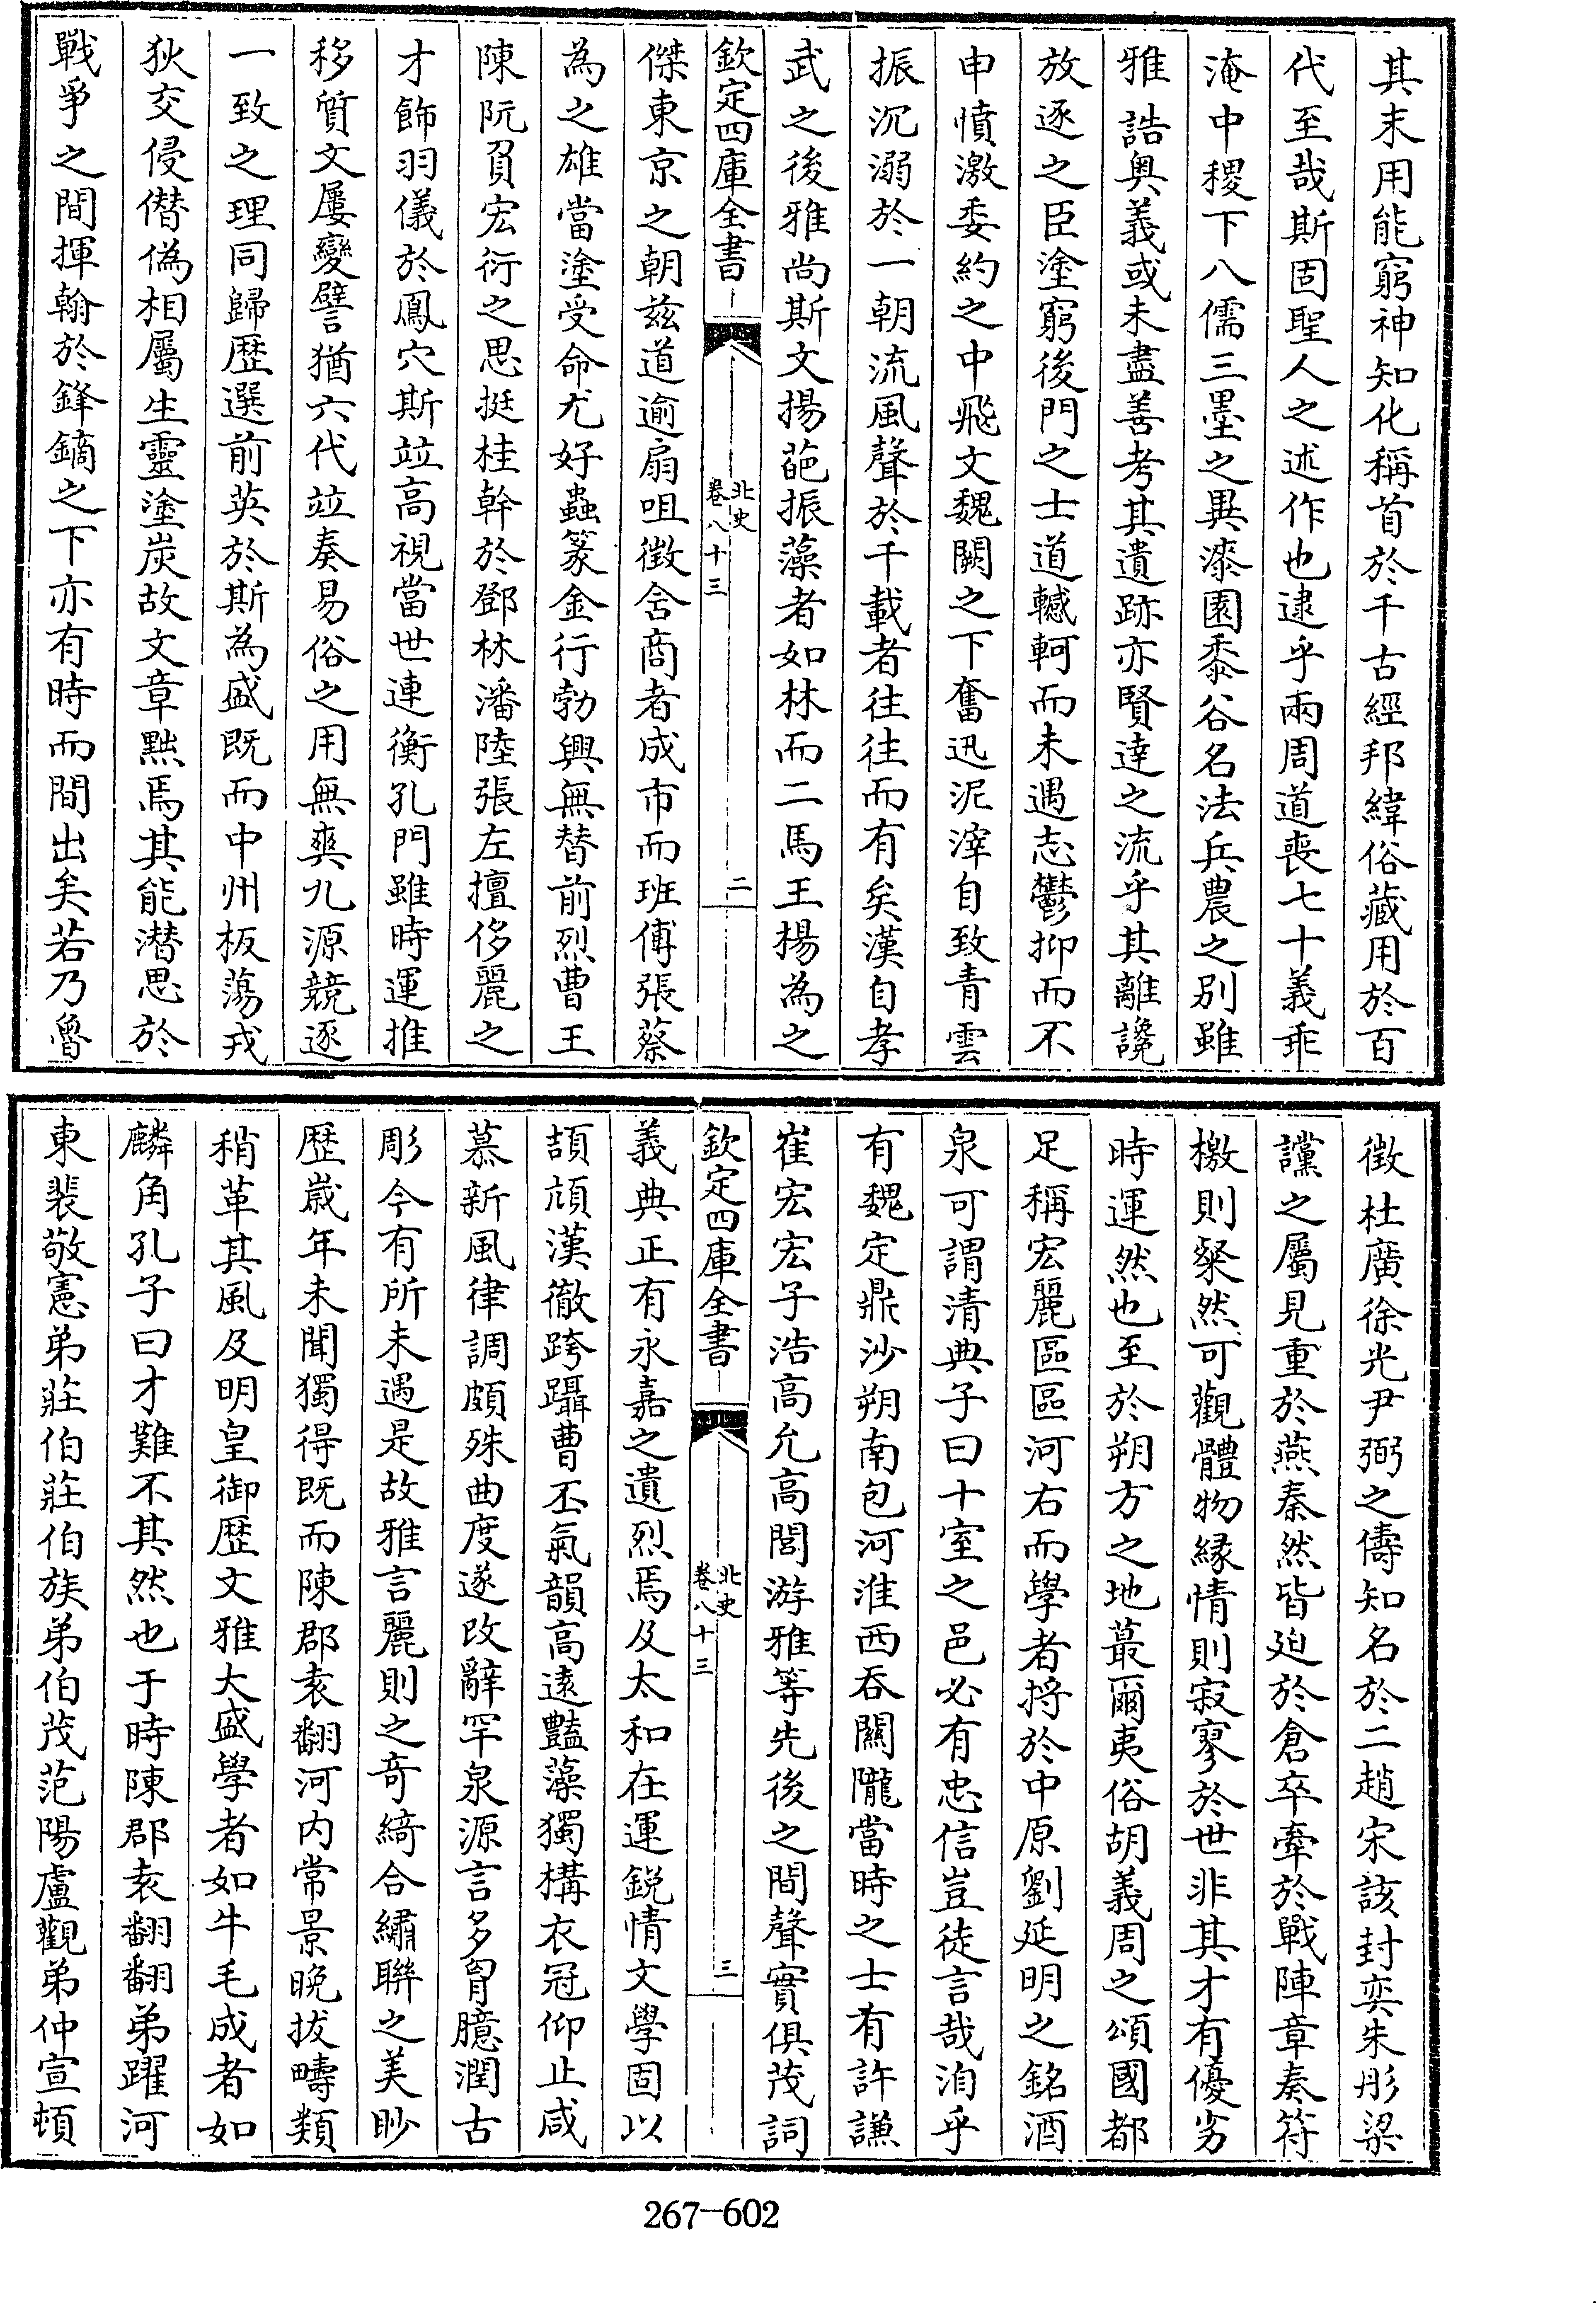 其末用能窮神知化稱首於千古經邦緯俗藏用於百
代至哉斯固聖人之述作也逮乎兩周道喪七十義乖
淹中稷下八儒三墨之異漆園黍谷名法兵農之別雖
雅誥奥義或未盡善考其遺跡亦賢達之流乎其離讒
放逐之臣塗窮後門之士道轗軻而未遇志鬱抑而不
申憤激委約之中飛文魏闕之下奮迅泥滓自致青雲
振沉溺於一朝流風聲於千載者往往而有矣漢自孝
武之後雅尚斯文揚葩振藻者如林而二馬王揚為之
欽定四庫全書
北史
卷八十三
二
傑東京之朝兹道逾扇咀徵含商者成市而班傅張蔡
為之雄當塗受命尤好蟲篆金行勃興無替前烈曹王
陳阮負宏衍之思挺桂幹於鄧林潘陸張左擅侈麗之
才飾羽儀於鳳穴斯竝高視當世連衡孔門雖時運推
移質文屢變譬猶六代竝奏易俗之用無爽九源競逐
一致之理同歸歴選前英於斯為盛既而中州板蕩戎
狄交侵僭偽相屬生靈塗炭故文章黜焉其能潜思於
戰爭之間揮翰於鋒鏑之下亦有時而間出矣若乃魯
徴杜廣徐光尹弼之儔知名於二趙宋該封奕朱彤梁
讜之屬見重於燕秦然皆迫於倉卒牽於戰陣章奏符
檄則粲然可觀體物縁情則寂寥於世非其才有優劣
時運然也至於朔方之地蕞爾夷俗胡義周之頌國都
足稱宏麗區區河右而學者埒於中原劉延明之銘酒
泉可謂清典子曰十室之邑必有忠信豈徒言哉洎乎
有魏定鼎沙朔南包河淮西吞關隴當時之士有許謙
崔宏宏子浩高允高閭游雅等先後之間聲實俱茂詞
欽定四庫全書
北史
卷八十三
三
義典正有永嘉之遺烈焉及太和在運鋭情文學固以
頡頏漢徹跨躡曹丕氣韻高遠豔藻獨構衣冠仰止咸
慕新風律調頗殊曲度遂改辭罕泉源言多胷臆潤古
彫今有所未遇是故雅言麗則之奇綺合繡聯之美眇
歴嵗年未聞獨得既而陳郡袁翻河内常景晚拔疇類
稍革其風及明皇御歴文雅大盛學者如牛毛成者如
麟角孔子曰才難不其然也于時陳郡袁翻翻弟躍河
東裴敬憲弟莊伯莊伯族弟伯茂范陽盧觀弟仲宣頓
267-602